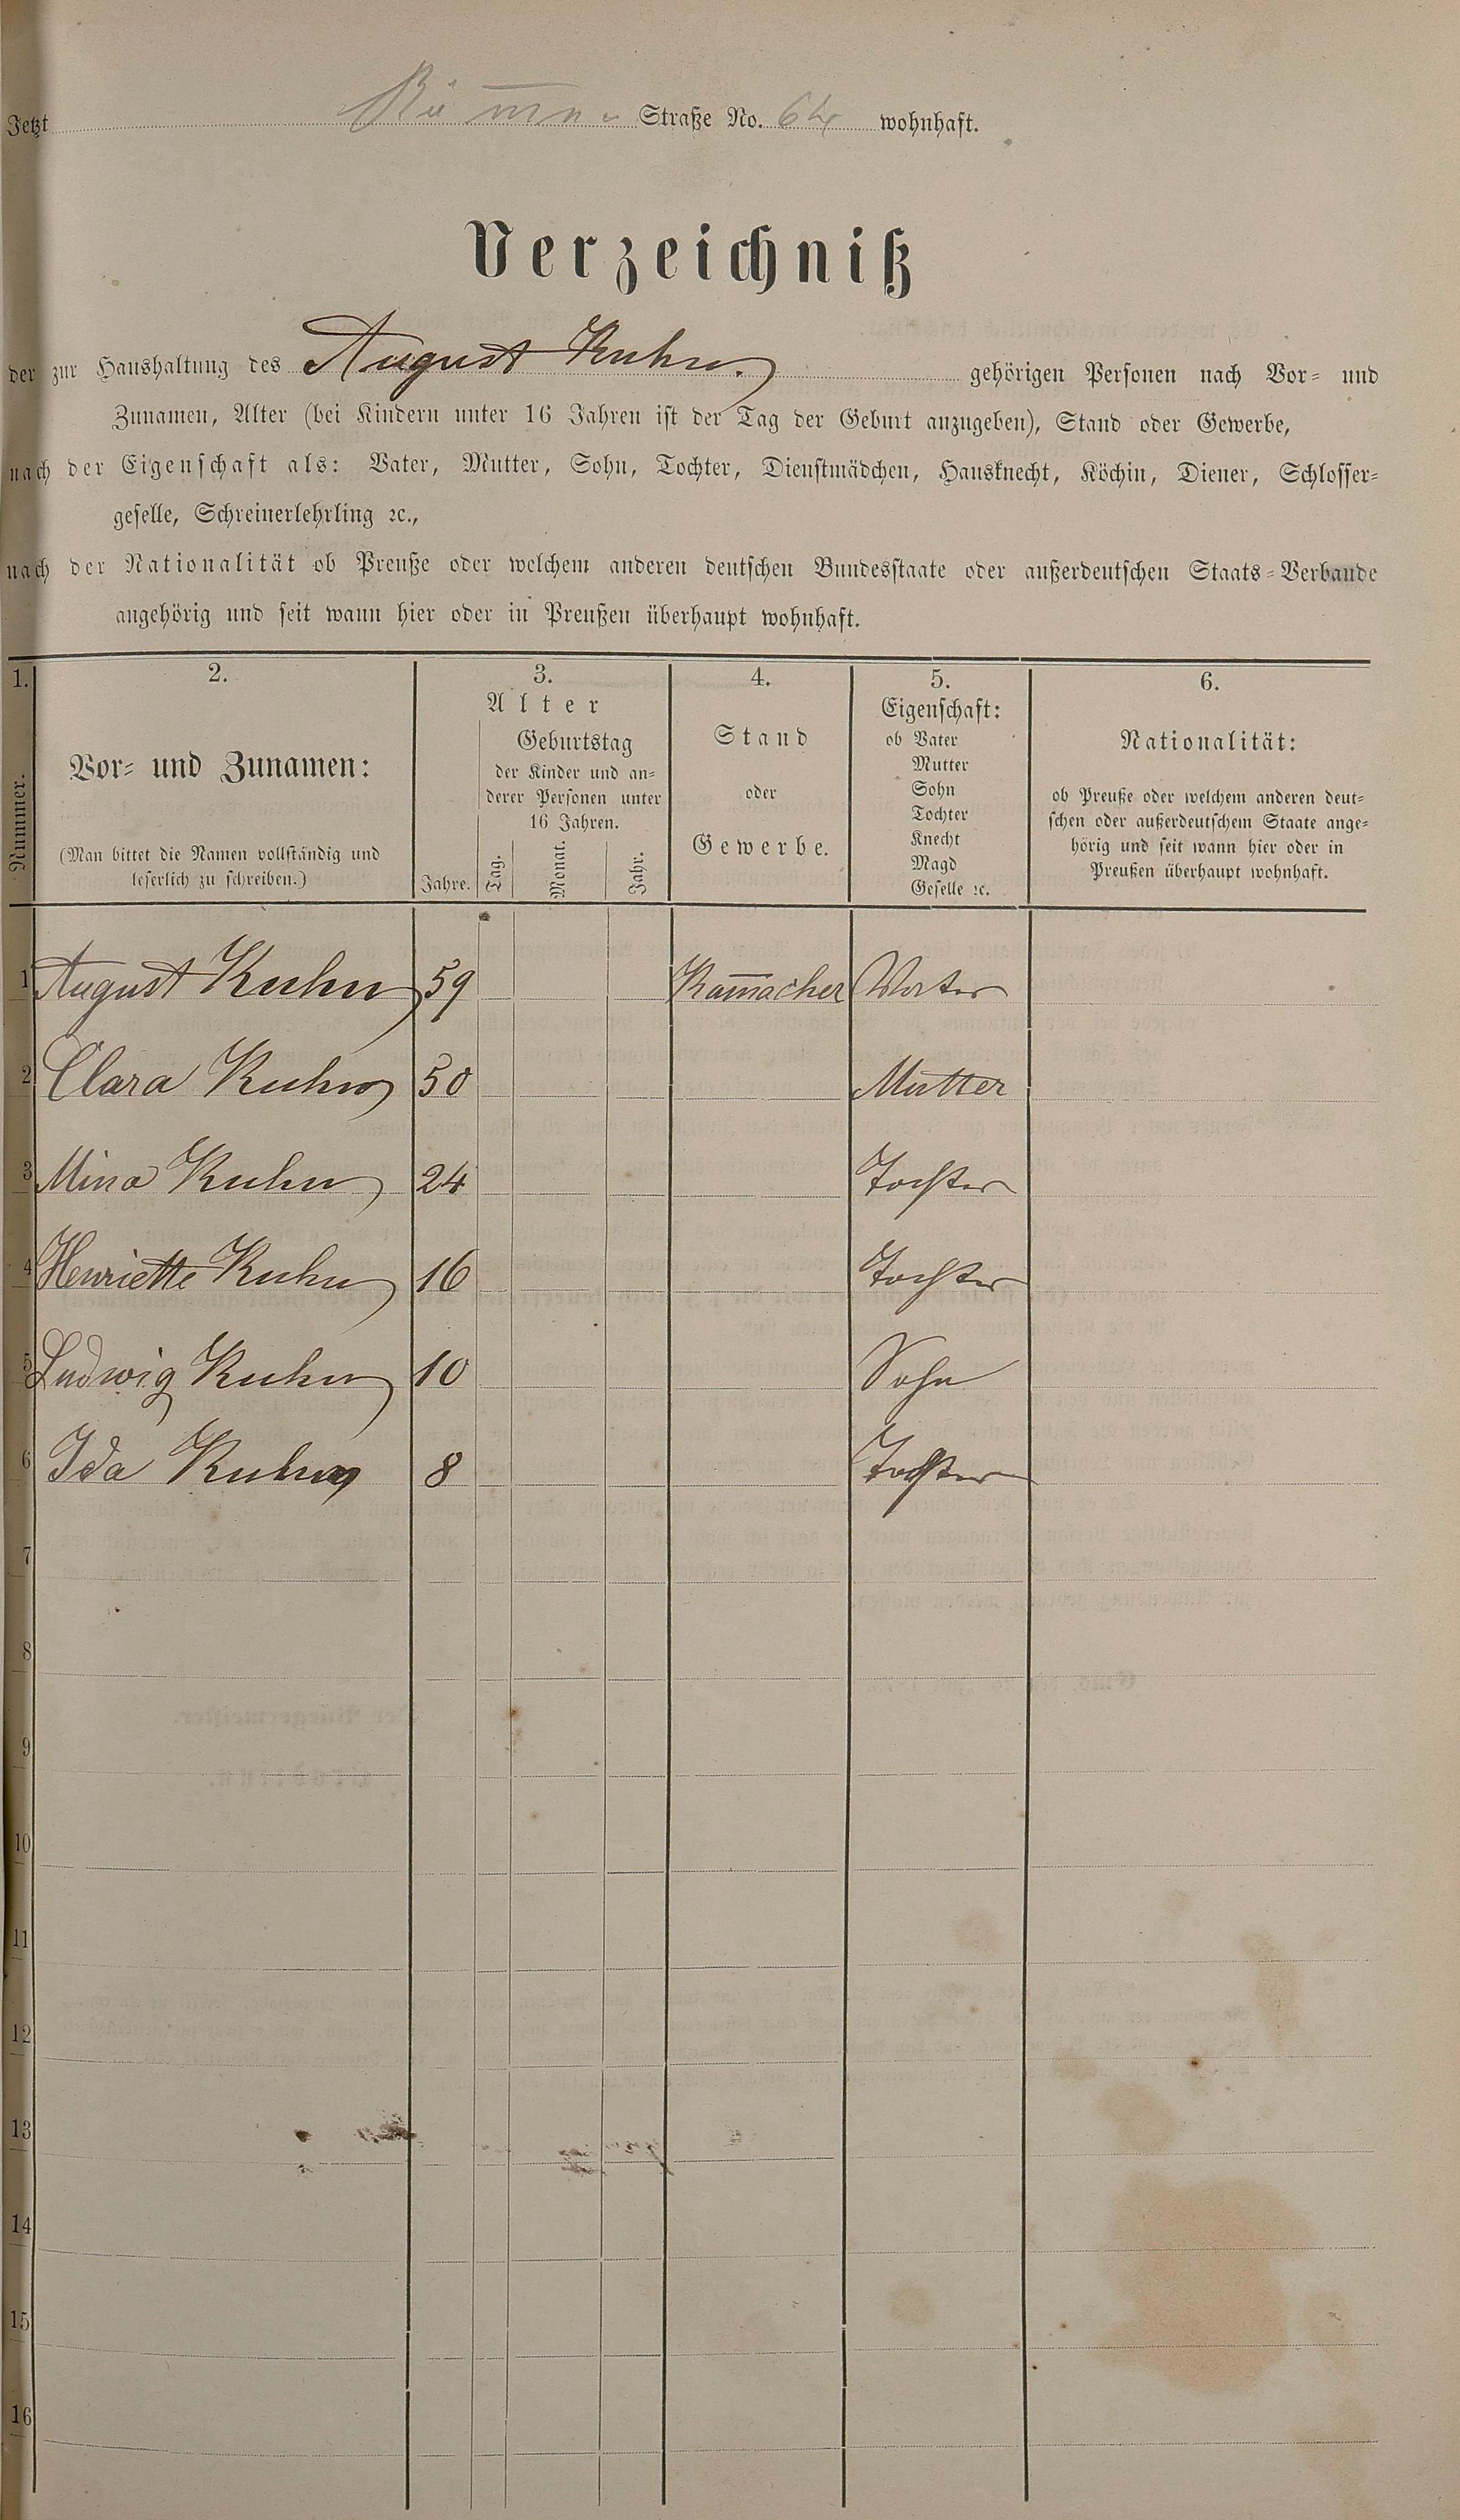 Jetzt Römer Straße No. 64 wohnhaft.
Verzeichniß
der zur Haushaltung des August Kuhn. gehörigen Personen nach Vor- und
Zunamen, Alter (bei Kindern unter 16 Jahren ist der Tag der Geburt anzugeben), Stand oder Gewerbe,
nach der Eigenschaft als: Vater, Mutter, Sohn, Tochter, Dienstmädchen, Hausknecht, Köchin, Diener, Schlosser-
geselle, Schreinerlehrling ꝛc.,
nach der Nationalität ob Preuße oder welchem anderen deutschen Bundesstaate oder außerdeutschen Staats-Verbande
angehörig und seit wann hier oder in Preußen überhaupt wohnhaft.
1. 2. 3. 4. 5. 6.
Nummer.
Vor- und Zunamen:
(Man bittet die Namen vollständig und
leserlich zu schreiben.)
Alter
Geburtstag
der Kinder und an-
derer Personen unter
16 Jahren.
Jahre. Tag. Monat. Jahr.
Stand
oder
Gewerbe.
Eigenschaft:
ob Vater
Mutter
Sohn
Tochter
Knecht
Magd
Geselle ꝛc.
Nationalität:
ob Preuße oder welchem anderen deut-
schen oder außerdeutschem Staate ange-
hörig und seit wann hier oder in
Preußen überhaupt wohnhaft.
1 August Kuhn 59 Kam̅acher Vater
2 Clara Kuhn 50 Mutter
3 Mina Kuhn 24 Tochter
4 Henriette Kuhn 16 Tochter
5 Ludwig Kuhn 10 Sohn
6 Ida Kuhn 8 Tochter
7
8
9
10
11
12
13
14
15
16